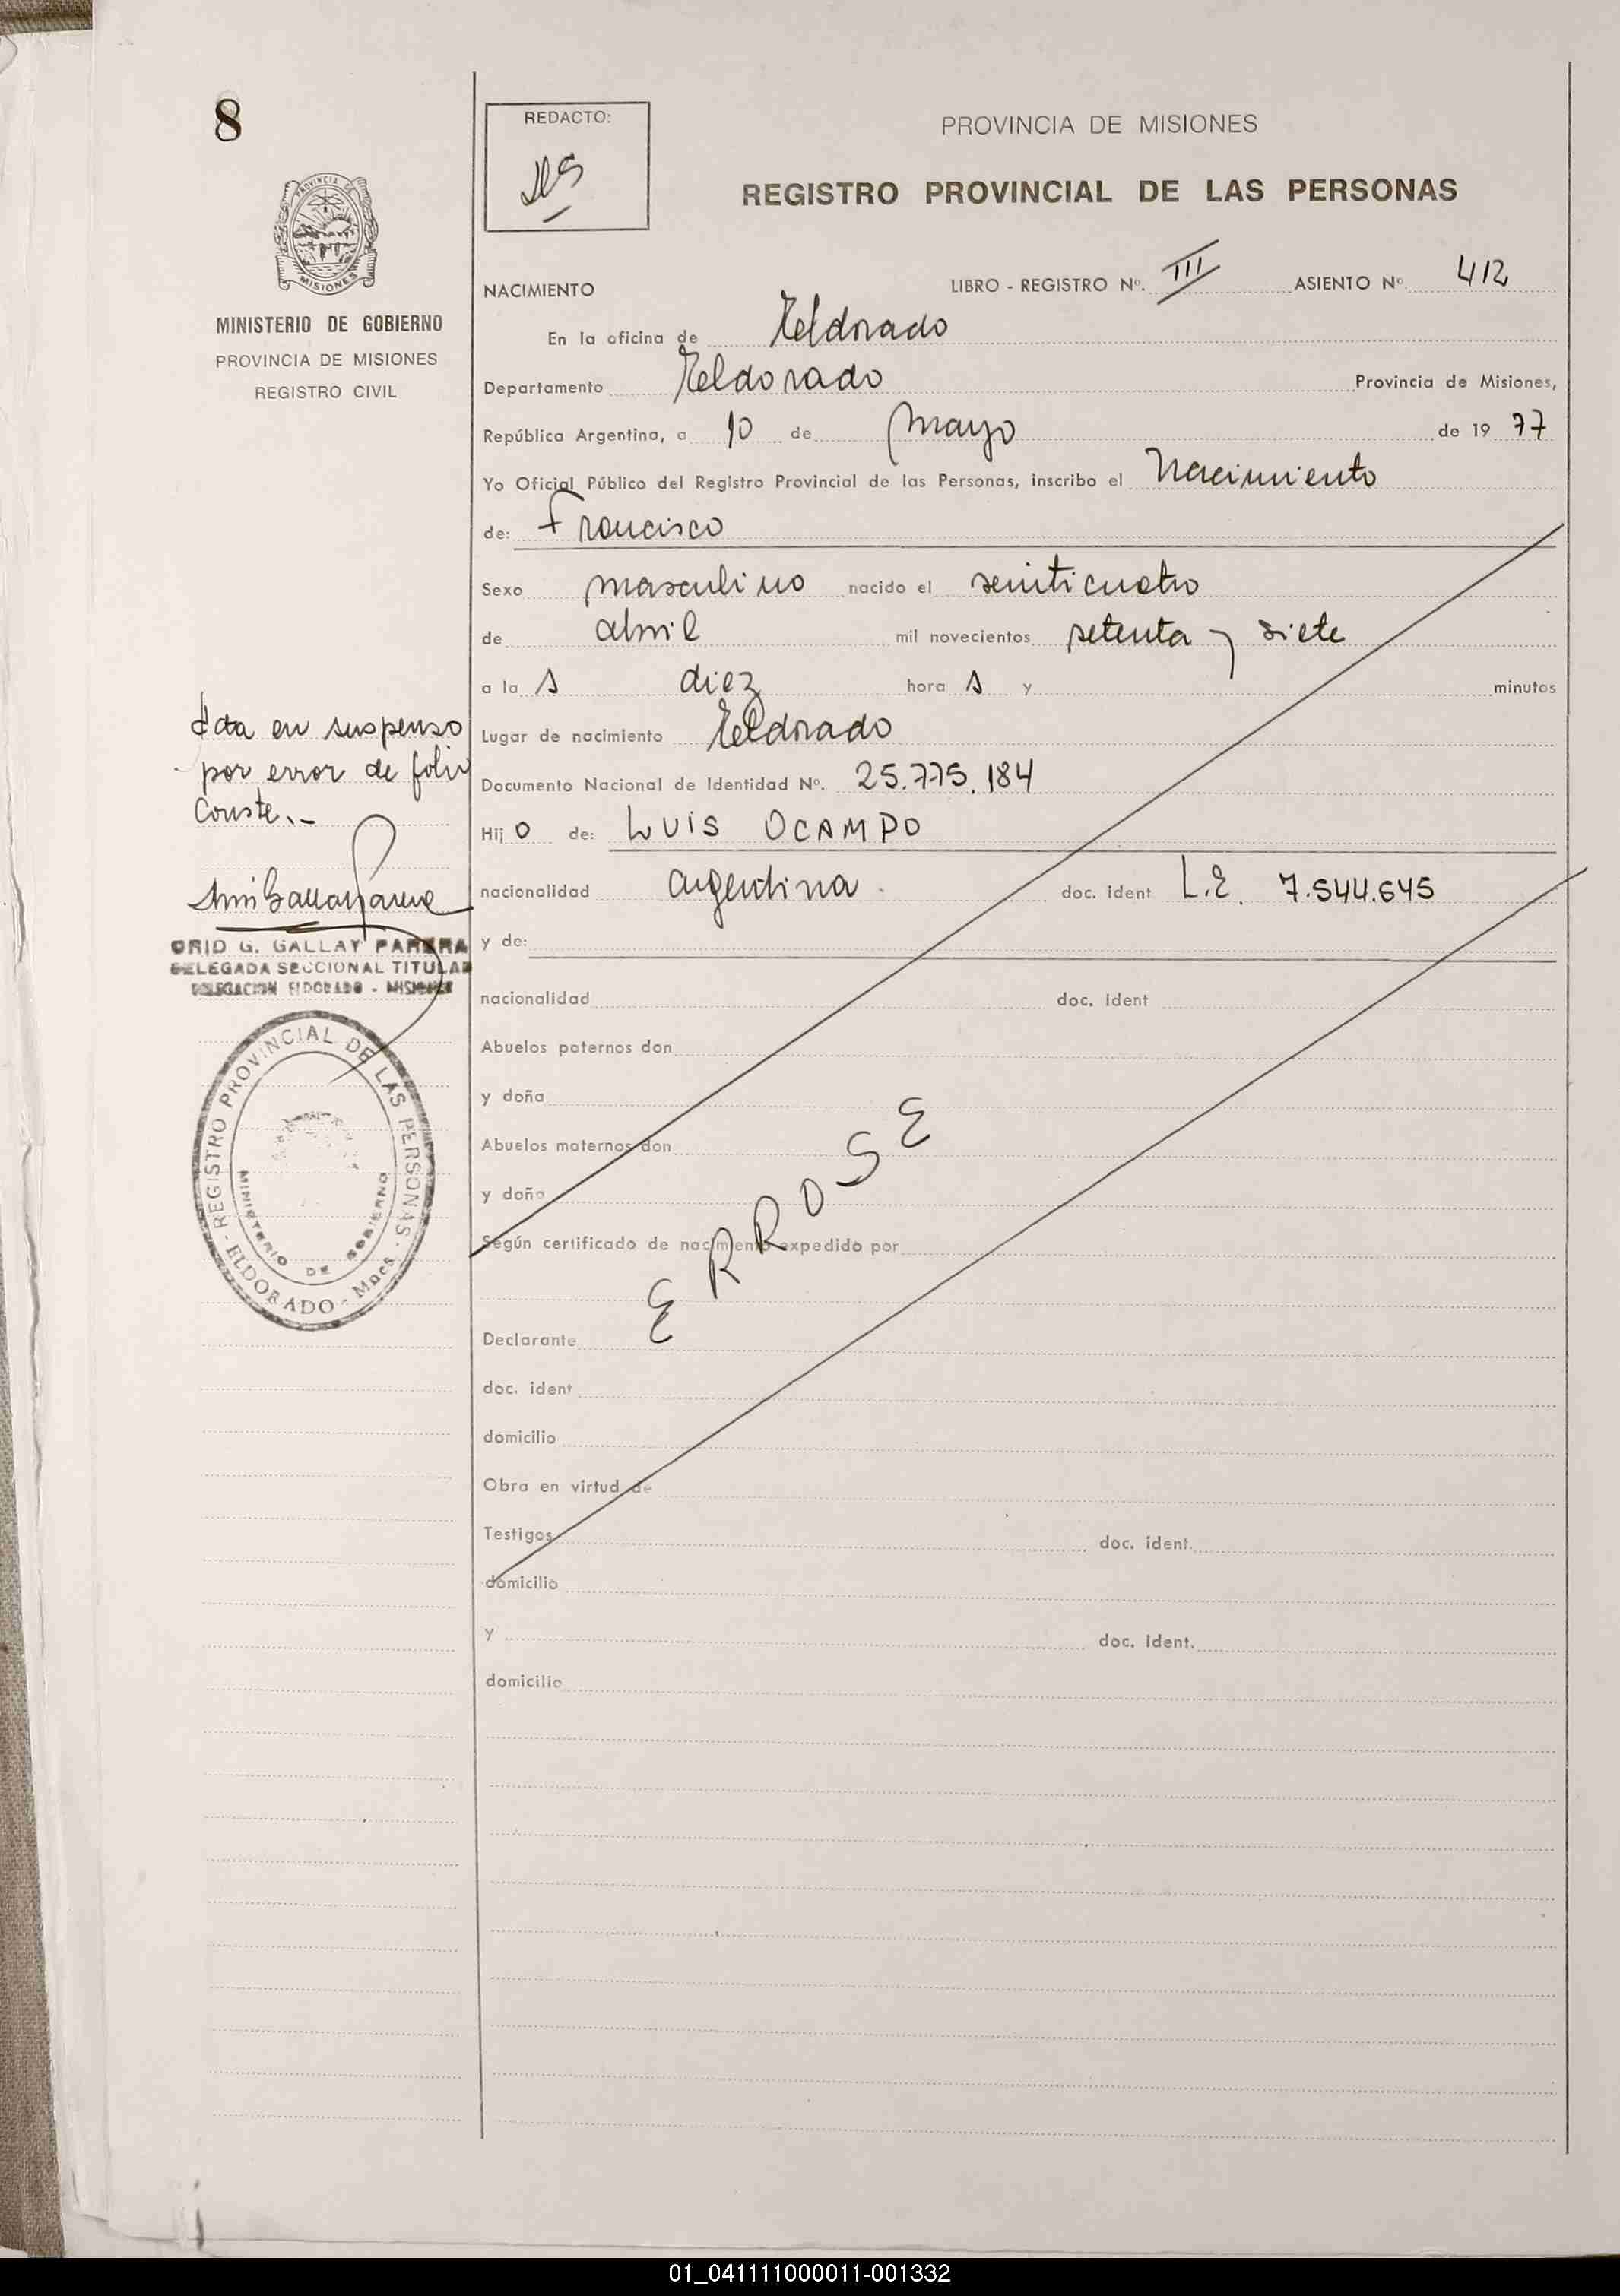 8
REDACTO:
PROVINCIA DE MISIONES
REGISTRO PROVINCIAL DE LAS PERSONAS
PROVINCIA DE
MISIONES
MINISTERIO DE GOBIERNO
PROVINCIA DE MISIONES
REGISTRO CIVIL
NACIMIENTO LIBRO - REGISTRO Nº. III ASIENTO Nº 412
En la oficina de Eldorado
Departamento Eldorado Provincia de Misiones,
República Argentina, a 10 de mayo de 19 77
Yo Oficial Público del Registro Provincial de las Personas, inscribo el Nacimiento
de: Francisco
Sexo masculino nacido el veinticuatro
de abril mil novecientos setenta y siete
a la s diez hora s y minutos
Lugar de nacimiento Eldorado
Documento Nacional de Identidad Nº. 25.775.184
Hij o de: LUIS OCAMPO
nacionalidad argentina. doc. ident L.E. 7.544.645
y de:
nacionalidad doc. ident
Abuelos paternos don
y doña
Abuelos maternos don
y doña
Según certificado de nacimiento expedido por
ERROSE
Declarante
doc. ident
domicilio
Obra en virtud de
Testigos doc. ident.
domicilio
y doc. ident.
domicilio
en suspenso
por error de folio
Conste.-
ORID G. GALLAY PARERA
DELEGADA SECCIONAL TITULAR
DELEGACION ELDORADO - MISIONES
REGISTRO PROVINCIAL DE LAS PERSONAS
- ELDORADO - Mnes -
MINISTERIO DE GOBIERNO
01_041111000011-001332